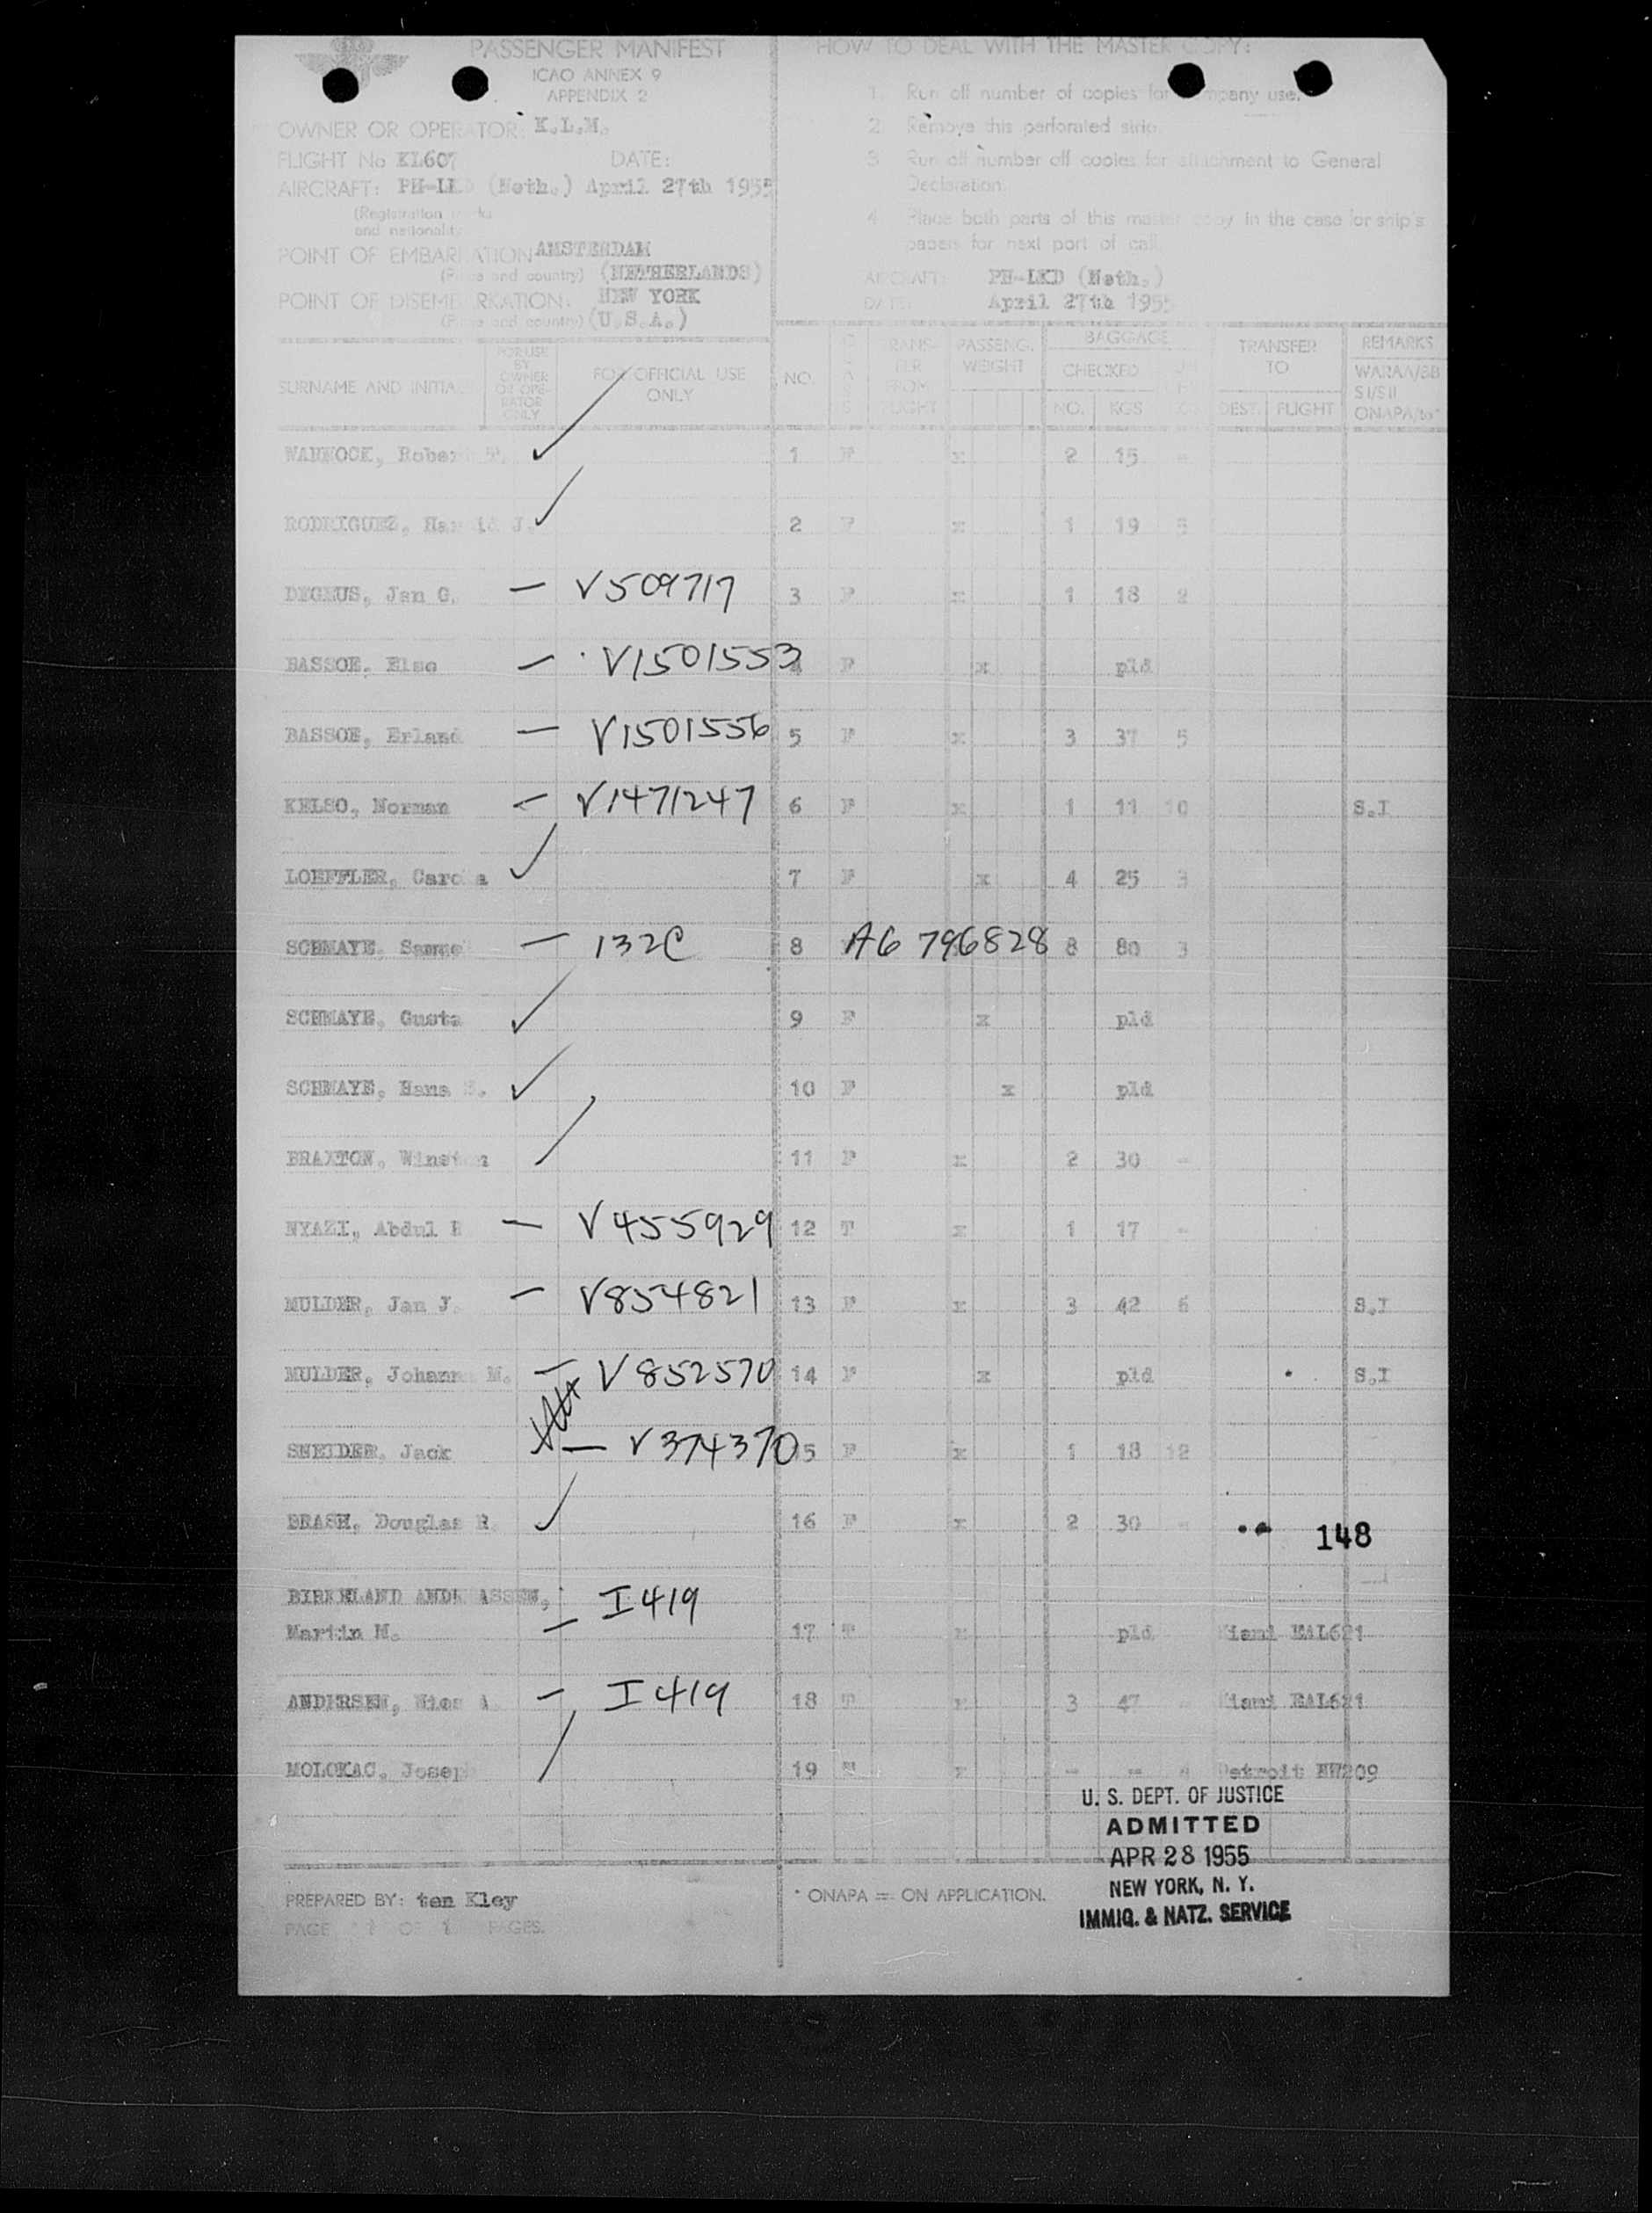 PASSENGER MANIFEST
ICAO ANNEX 9
APPENDIX 2
OWNER OR OPERATOR: K.L.M.
FLIGHT No KL607 DATE:
AIRCRAFT: PH-LKD (Neth.) April 27th 1955
(Registration marks
and nationality
POINT OF EMBARKATION AMSTERDAM
(Place and country) (NETHERLANDS)
POINT OF DISEMBARKATION: NEW YORK
(Place and country) (U.S.A.)
HOW TO DEAL WITH THE MASTER COPY:
1. Run off number of copies for company use.
2. Remove this perforated strip.
3. Run off number off copies for attachment to General
Declaration.
4. Place both parts of this master copy in the case for ship's
papers for next port of call.
AIRCRAFT: PH-LKD (Neth.)
DATE: April 27th 1955
SURNAME AND INITIA FOR USE BY OWNER OR OPERATOR ONLY FOR OFFICIAL USE ONLY NO. TRANSFER FROM FLIGHT PASSENG. WEIGHT BAGGAGE CHECKED NO. KGS TRANSFER TO DEST. FLIGHT REMARKS
WARAA/BB
SI/SII
ONAPA/to*
Rober 1 F x 2 15 -
RODRIGUEZ, J. 2 F x 1 19 5
DEGEUS, Jan G. — V509717 3 F x 1 18 2
BASSOE, Else — V1501553 4 F x pld
BASSOE, Erland — V1501556 5 F x 3 37 5
KELSO, Norman — V1471247 6 F x 1 11 10 S.I
LOEFFLER, Carola 7 F x 4 25 3
SCHMAYE, Samue — 132C 8 A6 796828 8 80 3
SCHMAYE, Gusta 9 F x pld
SCHMAYE, Hans 10 F x pld
BRAXTON, Winston 11 F x 2 30 -
NYAZI, Abdul R — V455929 12 T x 1 17 -
MULDER, Jan J. — V854821 13 F x 3 42 6 S.I
MULDER, Johanna M. — V852570 14 F x pld S.I
SNEIDER, Jack — V374370 15 F x 1 18 12
BRASH, Douglas R. 16 F x 2 30 -
148
BIRKELAND ANDREASSEN,
Martin M. — I419 17 T x pld Miami EAL621
ANDERSEN, A. — I419 18 T x 3 47 Miami EAL621
MOLOKAC, Josep 19 x - - Detroit NW209
U. S. DEPT. OF JUSTICE
ADMITTED
APR 28 1955
NEW YORK, N. Y.
IMMIG. & NATZ. SERVICE
PREPARED BY: ten Kley
* ONAPA = ON APPLICATION.
PAGE 1 OF 1 PAGES.